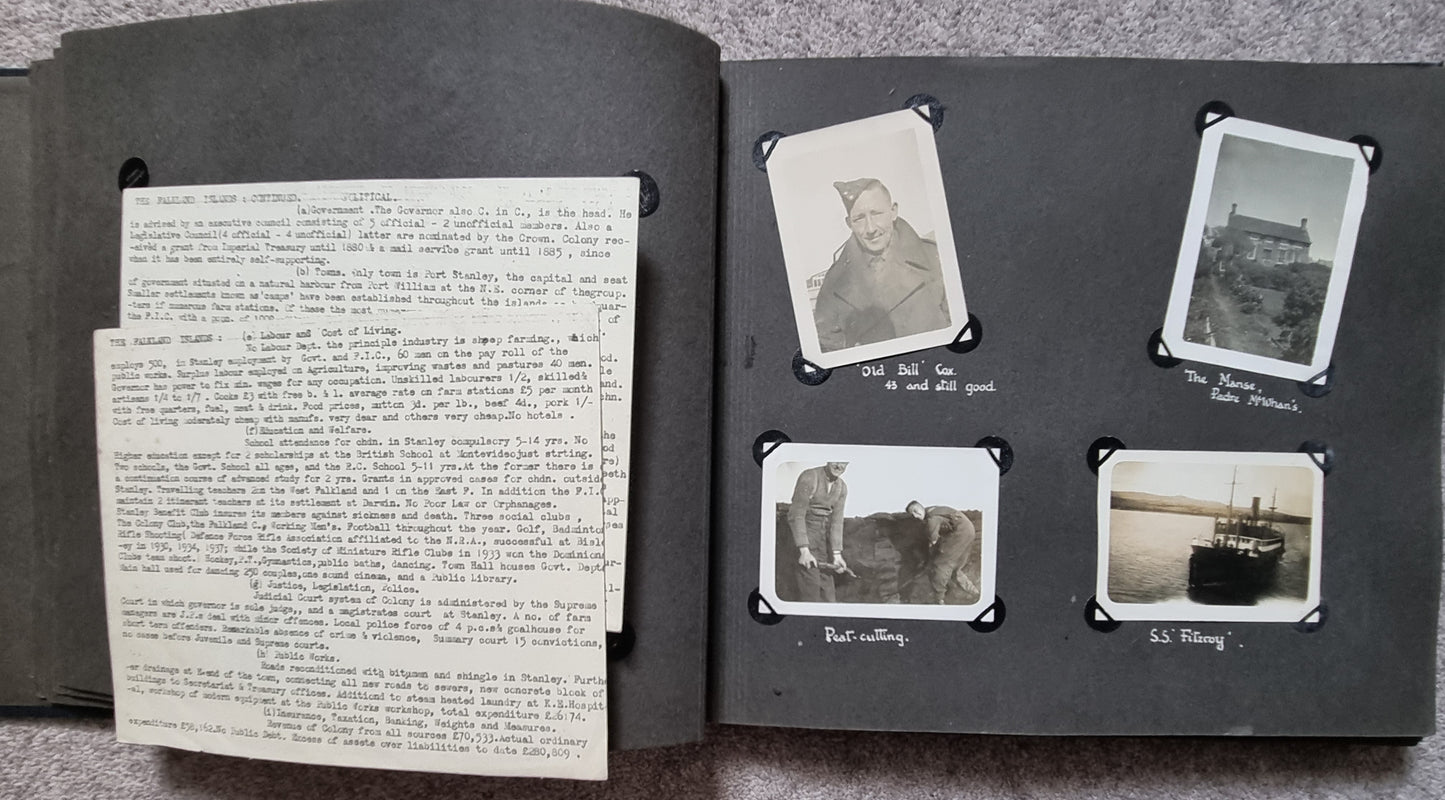 THE FALKLAND ISLANDS : CONTINUED. POLITICAL.
(a)Government .The Governor also C. in C., is the head. He
is advised by an executive council consisting of 5 official - 2 unofficial members. Also a
Legislative Council(4 official - 4 unofficial) latter are nominated by the Crown. Colony rec-
-eived a grant from Imperial Treasury until 1880 & a mail service grant until 1885 , since
when it has been entirely self-supporting.
(b) Towns. Only town is Port Stanley, the capital and seat
of government situated on a natural harbour from Port William at the N.E. corner of thegroup.
Smaller settlements known as'camps' have been established throughout the islands
-ters if numerous farm stations. Of these the most
the F.I.C. with a popn. of 1000
THE FALKLAND ISLANDS : (e) Labour and Cost of Living.
No Labour Dept. the principle industry is sheep farming., which
employs 500, in Stanley employment by Govt. and F.I.C., 60 men on the pay roll of the
public works. Surplus labour employed on Agriculture, improving wastes and pastures 40 men.
Governor has power to fix min. wages for any occupation. Unskilled labourers 1/2, skilled&
artisans 1/4 to 1/7 . Cooks £3 with free b. & l. average rate on farm stations £5 per month
with free quarters, fuel, meat & drink. Food prices, mutton 3d. per lb., beef 4d., pork 1/-
Cost of living moderately cheap with manufs. very dear and others very cheap.No hotels .
(f)Education and Welfare.
School attendance for chdn. in Stanley compulsory 5-14 yrs. No
Higher education except for 2 scholarships at the British School at Montevideojust strting.
Two schools, the Govt. School all ages, and the R.C. School 5-11 yrs.At the former there is
a continuation course of advanced study for 2 yrs. Grants in approved cases for chdn. outside
Stanley. Travelling teachers 2on the West Falkland and 1 on the East F. In addition the F.I.C
maintain 2 itinerant teachers at its settlement at Darwin. No Poor Law or Orphanages.
Stanley Benefit Club insures its members against sickness and death. Three social clubs ,
The Colony Club,the Falkland C., Working Men's. Football throughout the year. Golf, Badminto
Rifle Shooting( Defence Force Rifle Association affiliated to the N.R.A., successful at Bisl
-ey in 1930, 1934, 1937; while the Society of Miniature Rifle Clubs in 1933 won the Dominions
Clubs team shoot. Hockey,P.T.,Gymnastics,public baths, dancing. Town Hall houses Govt. Dept
Main hall used for dancing 250 couples,one sound cinema, and a Public Library.
(g) Justice, Legislation, Police.
Judicial Court system of Colony is administered by the Supreme
Court in which governor is sole judge,, and a magistrates court at Stanley. A no. of farm
managers are J.P.s deal with minor offences. Local police force of 4 p.c.s& goalhouse for
short term offenders. Remarkable absence of crime & violence, Summary court 15 convictions,
no cases before Juvenile and Supreme courts.
(h) Public Works.
Roads reconditioned with bitumen and shingle in Stanley. Furth
-er drainage at E.end of the town, connecting all new roads to sewers, new concrete block of
buildings to Secretariat & Treasury offices. Additiond to steam heated laundry at K.E.Hospit
-al, workshop of modern equipment at the Public Works workshop, total expenditure £26174.
(i)Insurance, Taxation, Banking, Weights and Measures.
Revenue of Colony from all sources £70,533.Actual ordinary
expenditure £58,162.No Public Debt. Excess of assets over liabilities to date £280,809 .
'Old Bill' Cox.
43 and still good.
'The Manse,
Padre McWhan's.
Peat-cutting.
S.S. 'Fitzroy'.